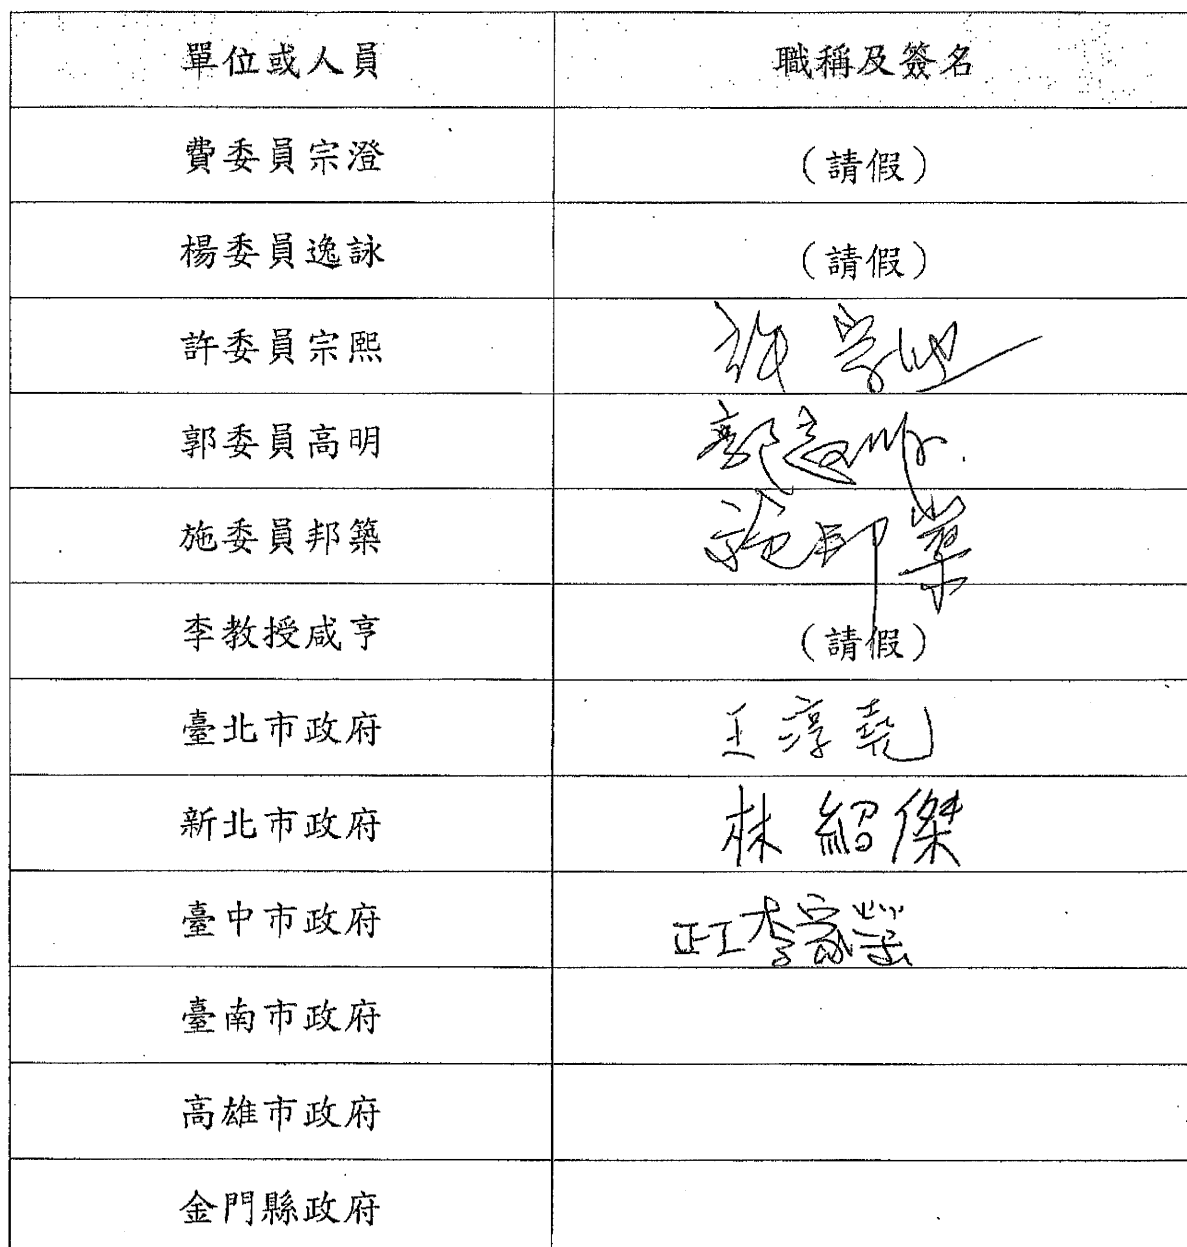 單位或人員 職稱及簽名
費委員宗澄 (請假)
楊委員逸詠 (請假)
許委員宗熙 許宗熙
郭委員高明 郭高明
施委員邦築 施邦築
李教授咸亨 (請假)
臺北市政府 王淳堯
新北市政府 林紹傑
臺中市政府 正工李家榮
臺南市政府
高雄市政府
金門縣政府